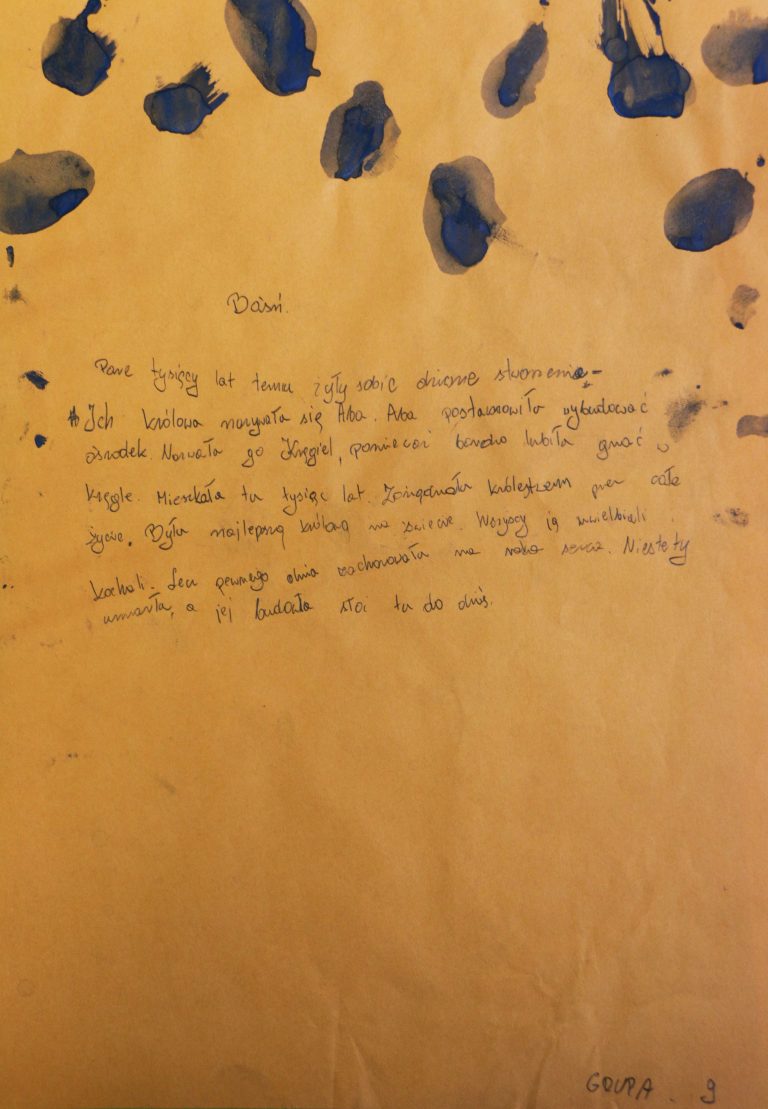 Baśń.
Pare tysięcy lat temu żyły sobie dziwne stworzenia.
Ich królowa nazywała się Aba. Aba postanowiła wybudować
ośrodek. Nazwała go Kręgiel, ponieważ bardzo lubiła grać w
kręgle. Mieszkała tu tysiąc lat. Zarządzała królestwem przez całe
życie. Była najlepszą królową na świecie. Wszyscy ją uwielbiali i
kochali. Lecz pewnego dnia zachorowała na raka serca. Niestety
umarła, a jej budowla stoi tu do dziś.
GRUPA 9